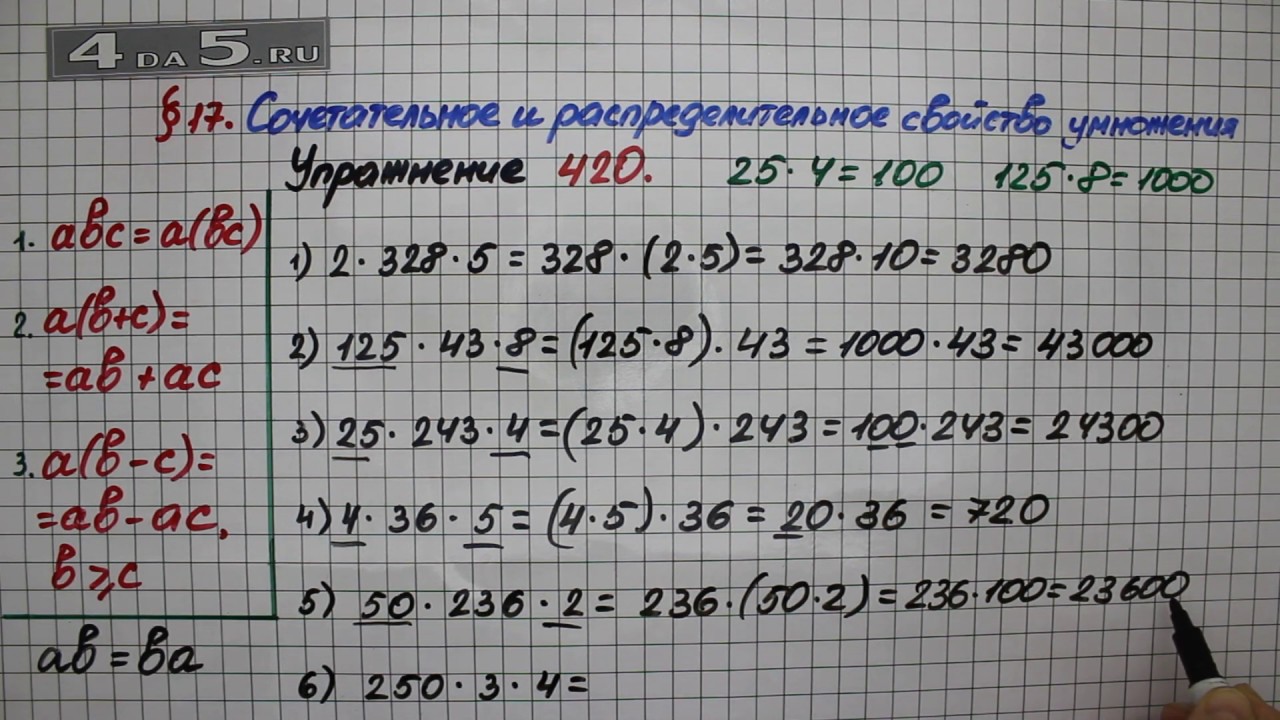 4DA5.RU
§17. Сочетательное и распределительное свойство умножения
Упражнение 420. 25·4=100 125·8=1000
1. авс=а(вс)
2. а(в+с)=
=ав+ас
3. а(в-с)=
=ав-ас,
в⩾с
ав=ва
1) 2·328·5=328·(2·5)=328·10=3280
2) 125·43·8=(125·8)·43=1000·43=43000
3) 25·243·4=(25·4)·243=100·243=24300
4) 4·36·5=(4·5)·36=20·36=720
5) 50·236·2=236·(50·2)=236·100=23600
6) 250·3·4=